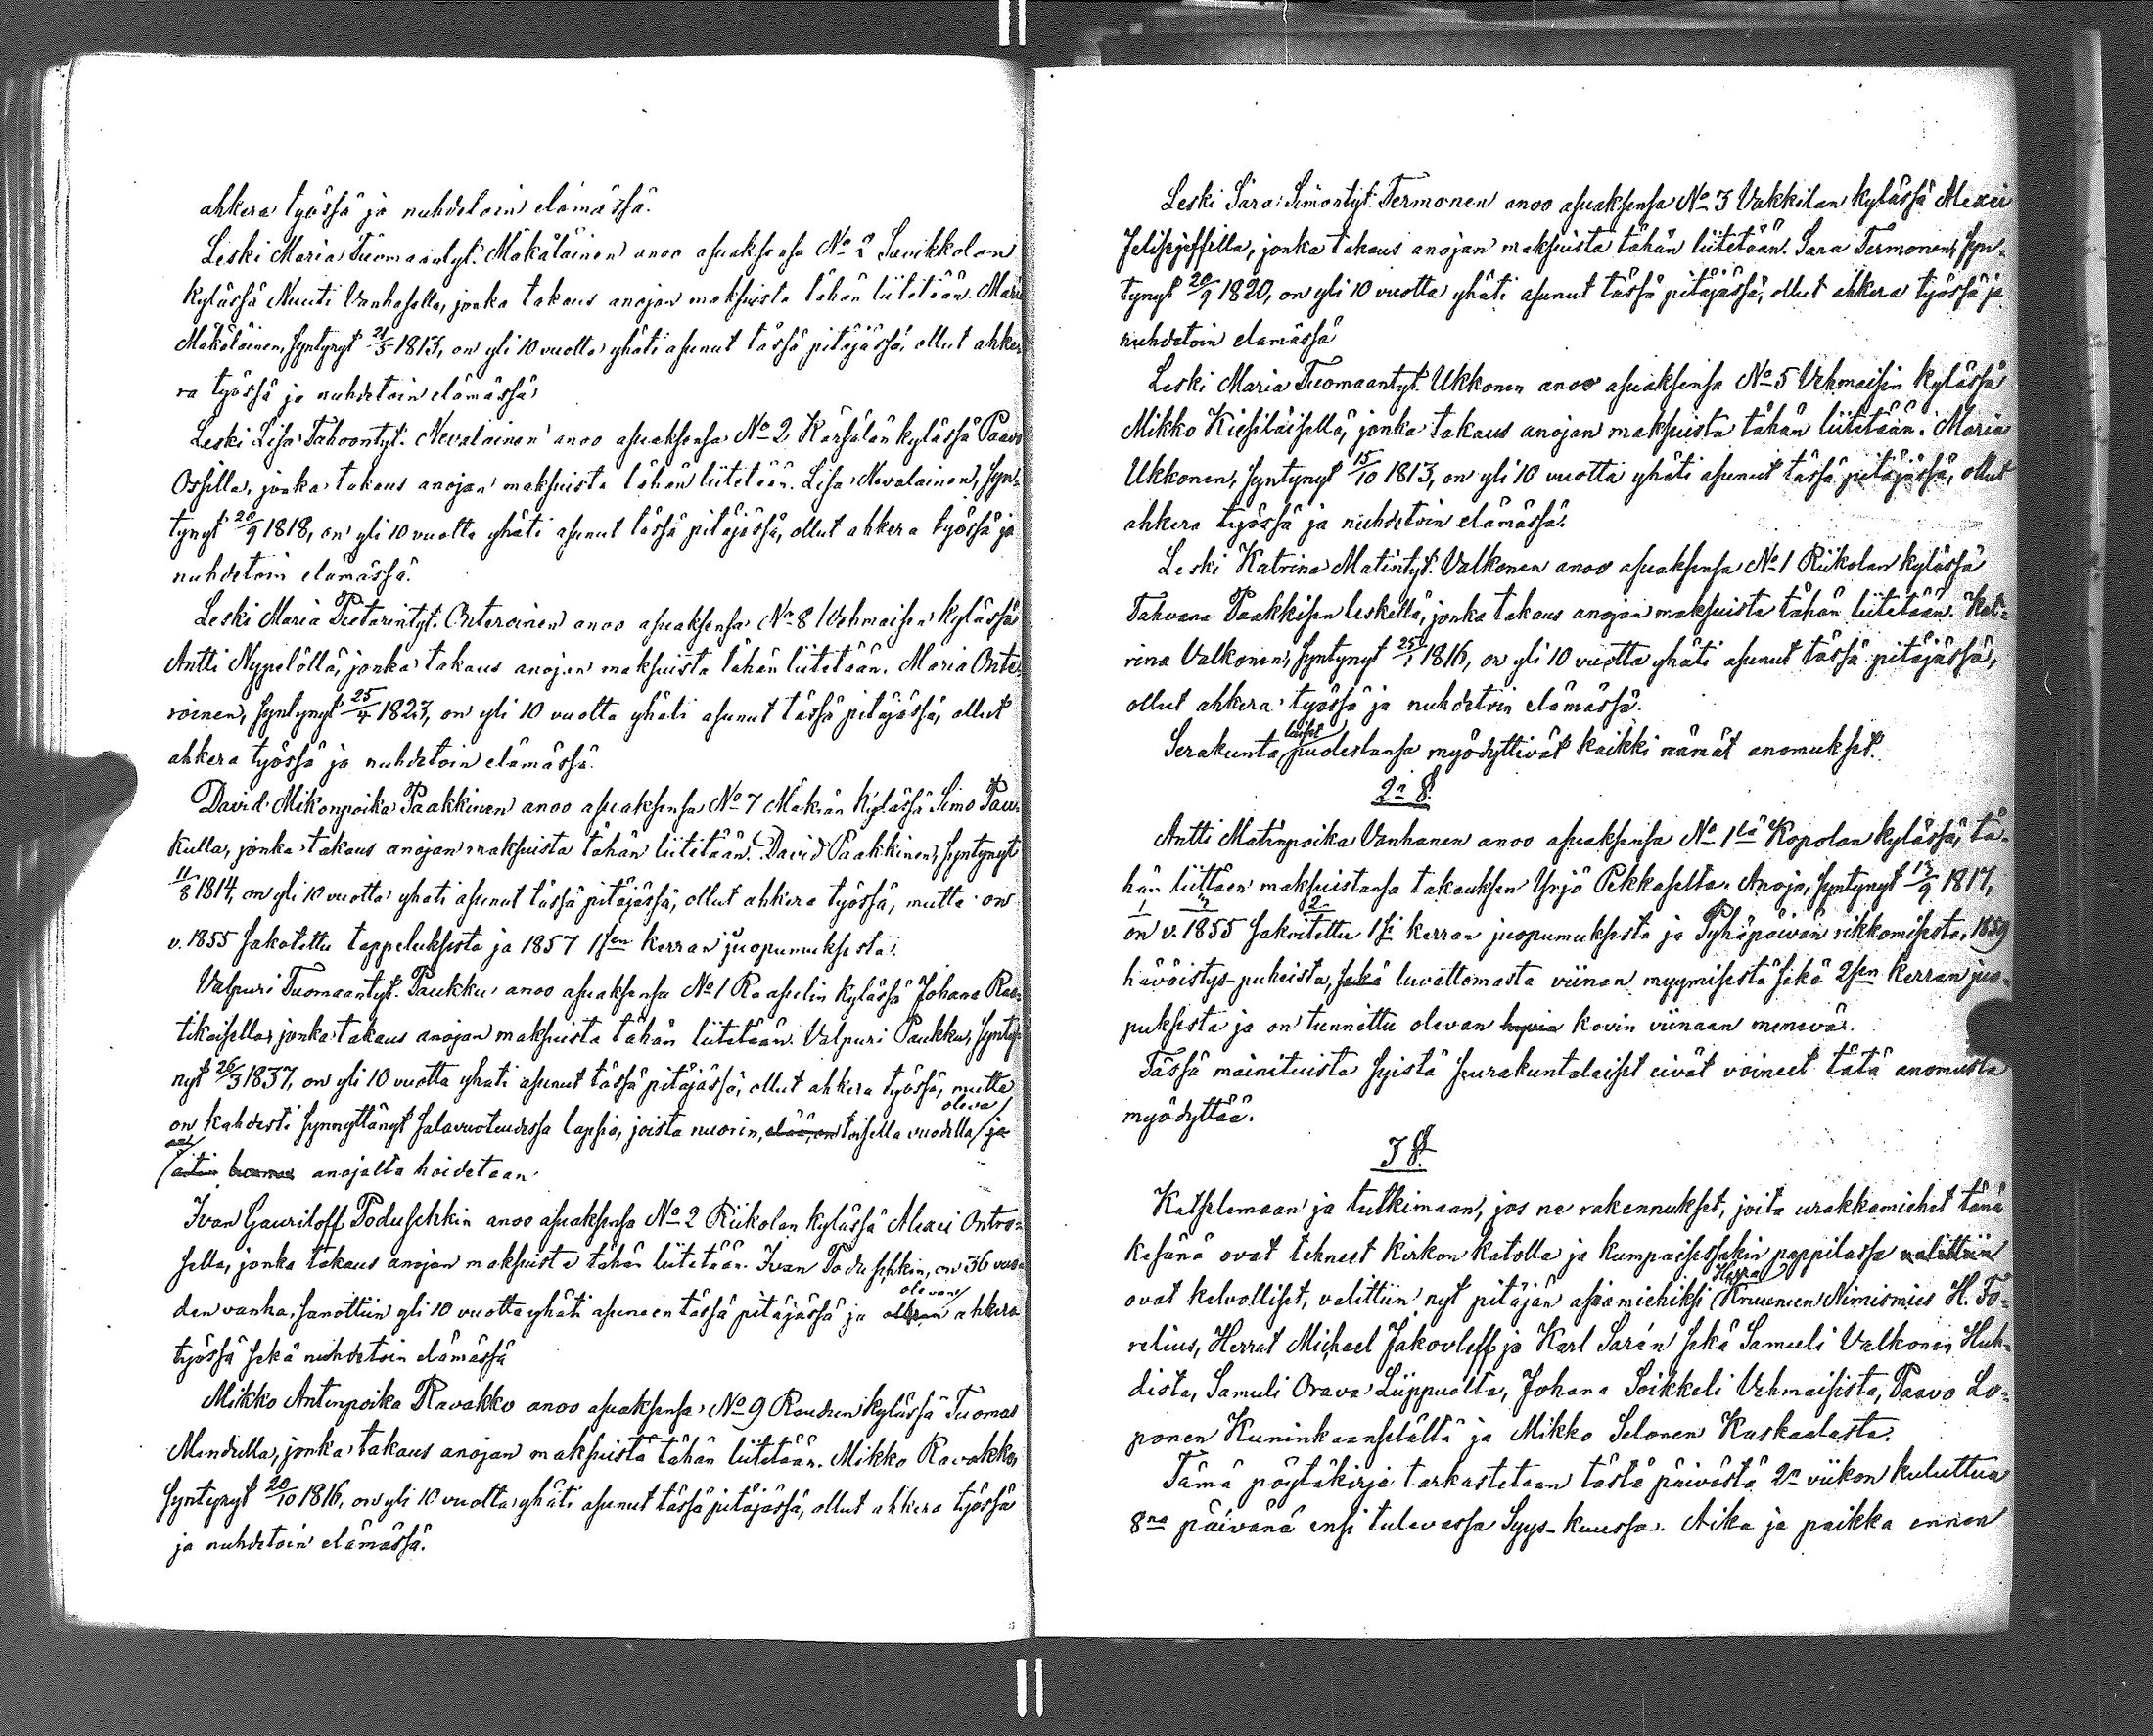 ahkera työssä ja nuhdetoin elämässä.
Leski Maria Tuomaantyt. Mäkäläinen anoo asuaksensa No 2 Savikkolan
kylässä Nuuti Vanhasella, jonka takaus anojan maksuista tähän liitetään. Maria
Mäkäläinen, syntynyt 21/5 1813, on yli 10 vuotta yhäti asunut tässä pitäjässä, ollut ahke-
ra työssä ja nuhdetoin elämässä,
Leski Lisa Tahvontyt. Nevalainen anoo asuaksensa No 2 Kärsälän kylässä Paavo
Ossilla, jonka takaus anojan maksuista tähän liitetään. Lisa Nevalainen, syn-
tynyt 20/9 1818, on yli 10 vuotta yhäti asunut tässä pitäjässä, ollut ahkera työssä ja
nuhdetoin elämässä.
Leski Maria Pietarintyt. Onteroinen anoo asuaksensa No 8 Vehmaisen kylässä
Antti Nyppelöllä, jonka takaus anojan maksuista tähän liitetään. Maria Onte-
roinen, syntynyt 25/4 1823, on yli 10 vuotta yhäti asunut tässä pitäjässä, ollut
ahkera työssä ja nuhdetoin elämässä.
David Mikonpoika Paakkinen anoo asuaksensa No 7 Mäkiän kylässä Simo Pau-
kulla, jonka takaus anojan maksuista tähän liitetään. David Paakkinen, syntynyt
11/8 1814, on yli 10 vuotta yhäti asunut tässä pitäjässä, ollut ahkera työssä, mutta on
v. 1855 sakotettu tappeluksista ja 1857 1sen kerran juopumuksista.
Valpuri Tuomaantyt. Paukku anoo asuaksensa No 1 Raasulin kylässä Johana Rau-
tikaisella, jonka takaus anojan maksuista tähän liitetään. Valpuri Paukku, synty-
nyt 26/3 1837, on yli 10 vuotta yhäti asunut tässä pitäjässä, ollut ahkera työssä, mutta
on kahdesti synnyttänyt salavuoteudessa lapsia, joista nuorin, elää, on toisella vuodella oleva ja
äitin anojalta hoidetaan.
Ivan Gauriloff Poduschkin anoo asuaksensa No 2 Riikolan kylässä Alexei Ontro-
sella, jonka takaus anojan maksuista tähän liitetään. Ivan Poduschkin, on 36 vuo-
den vanha, sanottiin yli 10 vuotta yhäti asuneen tässä pitäjässä ja olevan ahkera
työssä sekä nuhdetoin elämässä
Mikko Antinpoika Ravakko anoo asuaksensa No 9 Raudun kylässä Tuomas
Mendulla, jonka takaus anojan maksuista tähän liitetään. Mikko Ravakko,
syntynyt 20/10 1816, on yli 10 vuotta yhäti asunut tässä pitäjässä, ollut ahkera työssä
ja nuhdetoin elämässä.
Leski Sara Simontyt. Termonen anoo asuaksensa No 3 Vakkilan kylässä Alexei
Jelisejeffilla, jonka takaus anojan maksuista tähän liitetään. Sara Termonen, syn-
tynyt 20/9 1820, on yli 10 vuotta yhäti asunut tässä pitäjässä, ollut ahkera työssä ja
nuhdetoin elämässä
Leski Maria Tuomaantyt. Ukkonen anoo asuaksensa No 5 Vehmaisin kylässä
Mikko Kiesiläisellä, jonka takaus anojan maksuista tähän liitetään. Maria
Ukkonen, syntynyt 15/10 1813, on yli 10 vuotta yhäti asunut tässä pitäjässä, ollut
ahkera työssä ja nuhdetoin elämässä.
Leski Katrina Matintyt. Valkonen anoo asuaksensa No 1 Riikolan kylässä
Tahvana Paakkisen leskellä, jonka takaus anojan maksuista tähän liitetään. Kat-
rina Valkonen, syntynyt 25/1 1816, on yli 10 vuotta yhäti asunut tässä pitäjässä,
ollut ahkera työssä ja nuhdetoin elämässä.
Serakuntalaiset puolestansa myödyttivät kaikki nämät anomukset.
2n §.
Antti Matinpoika Vanhanen anoo asuaksensa No 1llä Kopolan kylässä, tä-
hän liittäen maksuistansa takauksen Yrjö Pekkaselta. Anoja, syntynyt 13/9 1817,
on v. 1855 sakoitettu 1si kerran juopumuksesta ja Pyhäpäivän rikkomisesta, 1859
häväistys-puheista, sekä luvattomasta viinan myymisestä sekä 2sen kerran juo-
puksista ja on tunnettu olevan hyvin kovin viinaan menevä.
Tässä mainituista syistä seurakuntalaiset eivät voineet tätä anomusta
myödyttää.
3 §.
Katselemaan ja tutkimaan, jos ne rakennukset, joita urakkamiehet tänä
kesänä ovat tehneet kirkon katolla ja kumpaisessakin pappilassa valittiin
ovat kelvolliset, valittiin nyt pitäjän asiamiehiksi Herra Kruunun Nimismies H. Fo-
relius, Herrat Michael Jakovleff ja Karl Sarén sekä Samuli Valkonen Huh-
dista, Samuli Orava Liippualta, Johana Soikkeli Vehmaisista, Paavo Lo-
ponen Kuninkaanselältä ja Mikko Selonen Kaskaalasta.
Tämä pöytäkirja tarkastetaan tästä päivästä 2n viikon kuluttua
8na päivänä ensi tulevassa Syys-kuussa. Aika ja paikka ennen